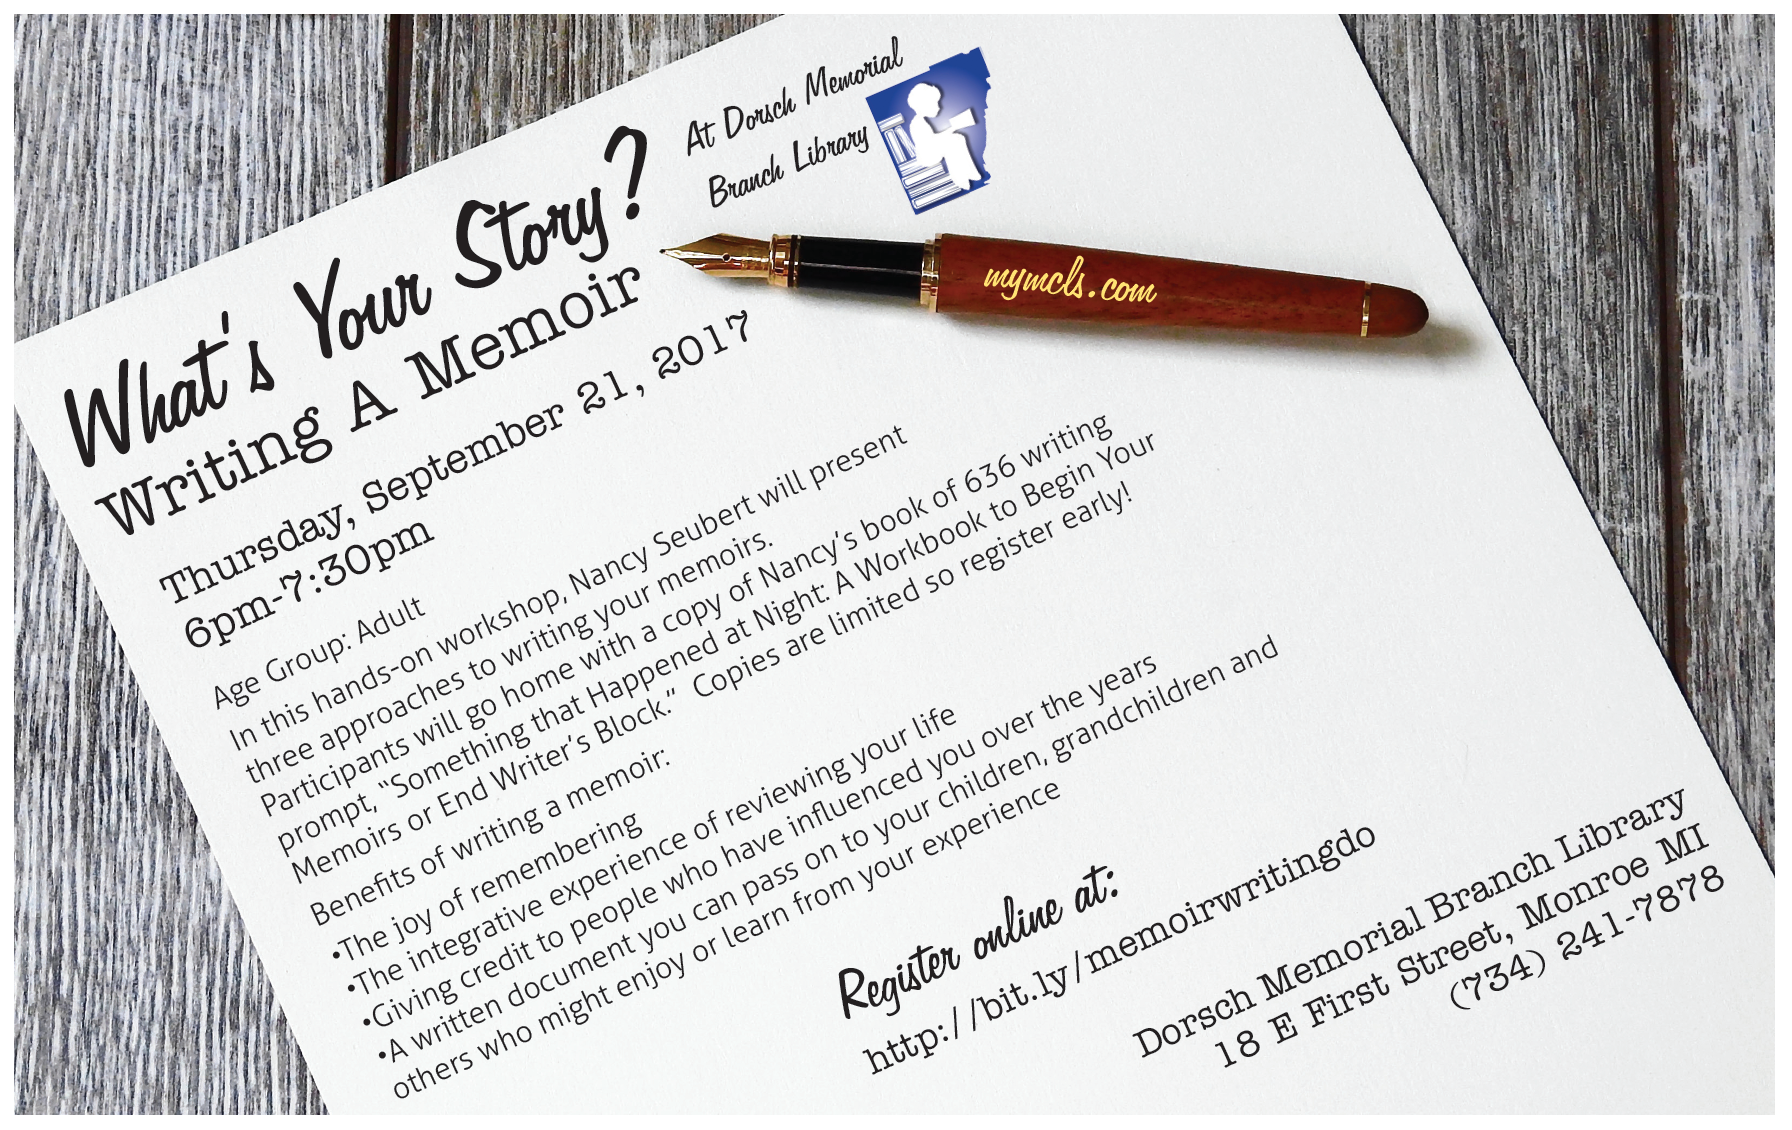 At Dorsch Memorial
Branch Library
What's Your Story?
Writing A Memoir
mymcls.com
Thursday, September 21, 2017
6pm-7:30pm
Age Group: Adult
In this hands-on workshop, Nancy Seubert will present
three approaches to writing your memoirs.
Participants will go home with a copy of Nancy's book of 636 writing
prompt, "Something that Happened at Night: A Workbook to Begin Your
Memoirs or End Writer's Block." Copies are limited so register early!
Benefits of writing a memoir:
•The joy of remembering
•The integrative experience of reviewing your life
•Giving credit to people who have influenced you over the years
•A written document you can pass on to your children, grandchildren and
others who might enjoy or learn from your experience
Register online at:
http://bit.ly/memoirwritingdo
Dorsch Memorial Branch Library
18 E First Street, Monroe MI
(734) 241-7878